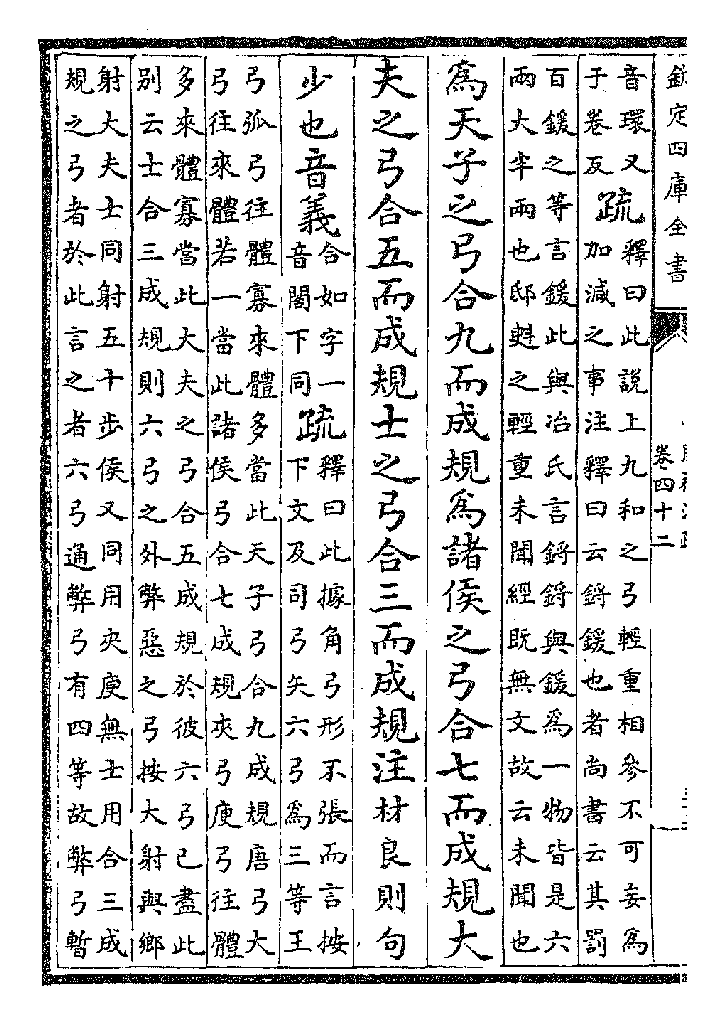 欽定四庫全書
卷四十二
音環又
于眷反
疏
釋曰此説上九和之弓輕重相參不可妄為
加減之事注釋曰云鋝鍰也者尚書云其罰
百鍰之等言鍰此與冶氏言鋝鋝與鍰為一物皆是六
兩大半兩也邸之輕重未聞經既無文故云未聞也
為天子之弓合九而成規為諸侯之弓合七而成規大
夫之弓合五而成規士之弓合三而成規注材良則句
少也音義
合如字一
音閤下同
疏
釋曰此據角弓形不張而言按
下文及司弓矢六弓為三等王
弓弧弓往體寡來體多當此天子弓合九成規唐弓大
弓往來體若一當此諸侯弓合七成規夾弓庾弓往體
多來體寡當此大夫之弓合五成規於彼六弓已盡此
別云士合三成規則六弓之外弊惡之弓按大射與鄉
射大夫士同射五十步侯又同用夾庾無士用合三成
規之弓者於此言之者六弓通弊弓有四等故弊弓暫